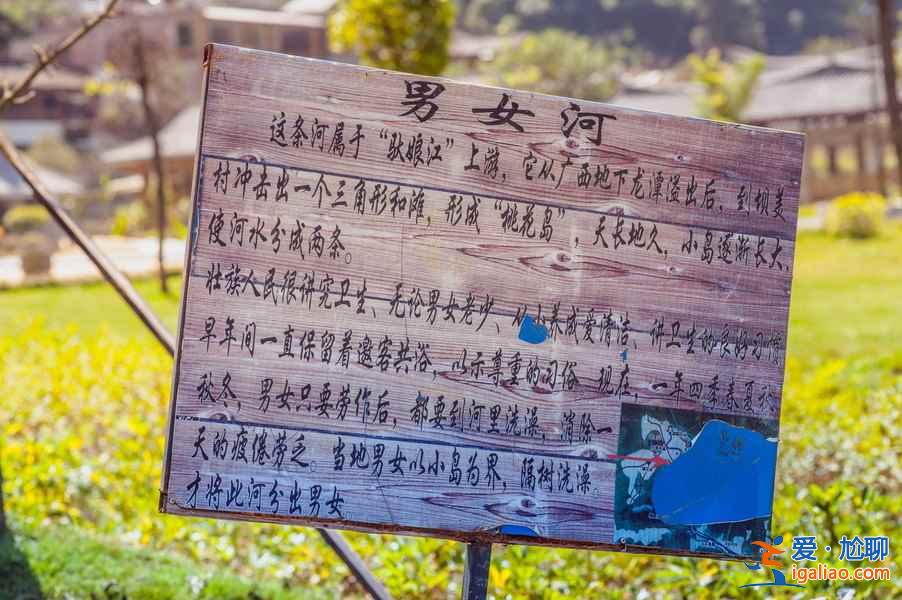 男女河
这条河属于“驮娘江”上游，它从广西地下龙潭溢出后，到坝美
村冲击出一个三角形和滩，形成“桃花岛”，天长地久，小岛逐渐长大，
使河水分成两条。
壮族人民很讲究卫生、无论男女老少、从小养成爱清洁、讲卫生的良好习惯
早年间一直保留着邀客共浴，以示尊重的习俗 现在，一年四季春夏
秋冬，男女只要劳作后，都要到河里洗澡，消除一
天的疲倦劳乏。当地男女以小岛为界，隔树洗澡
才将此河分出男女
爱尬聊
igaliao.com